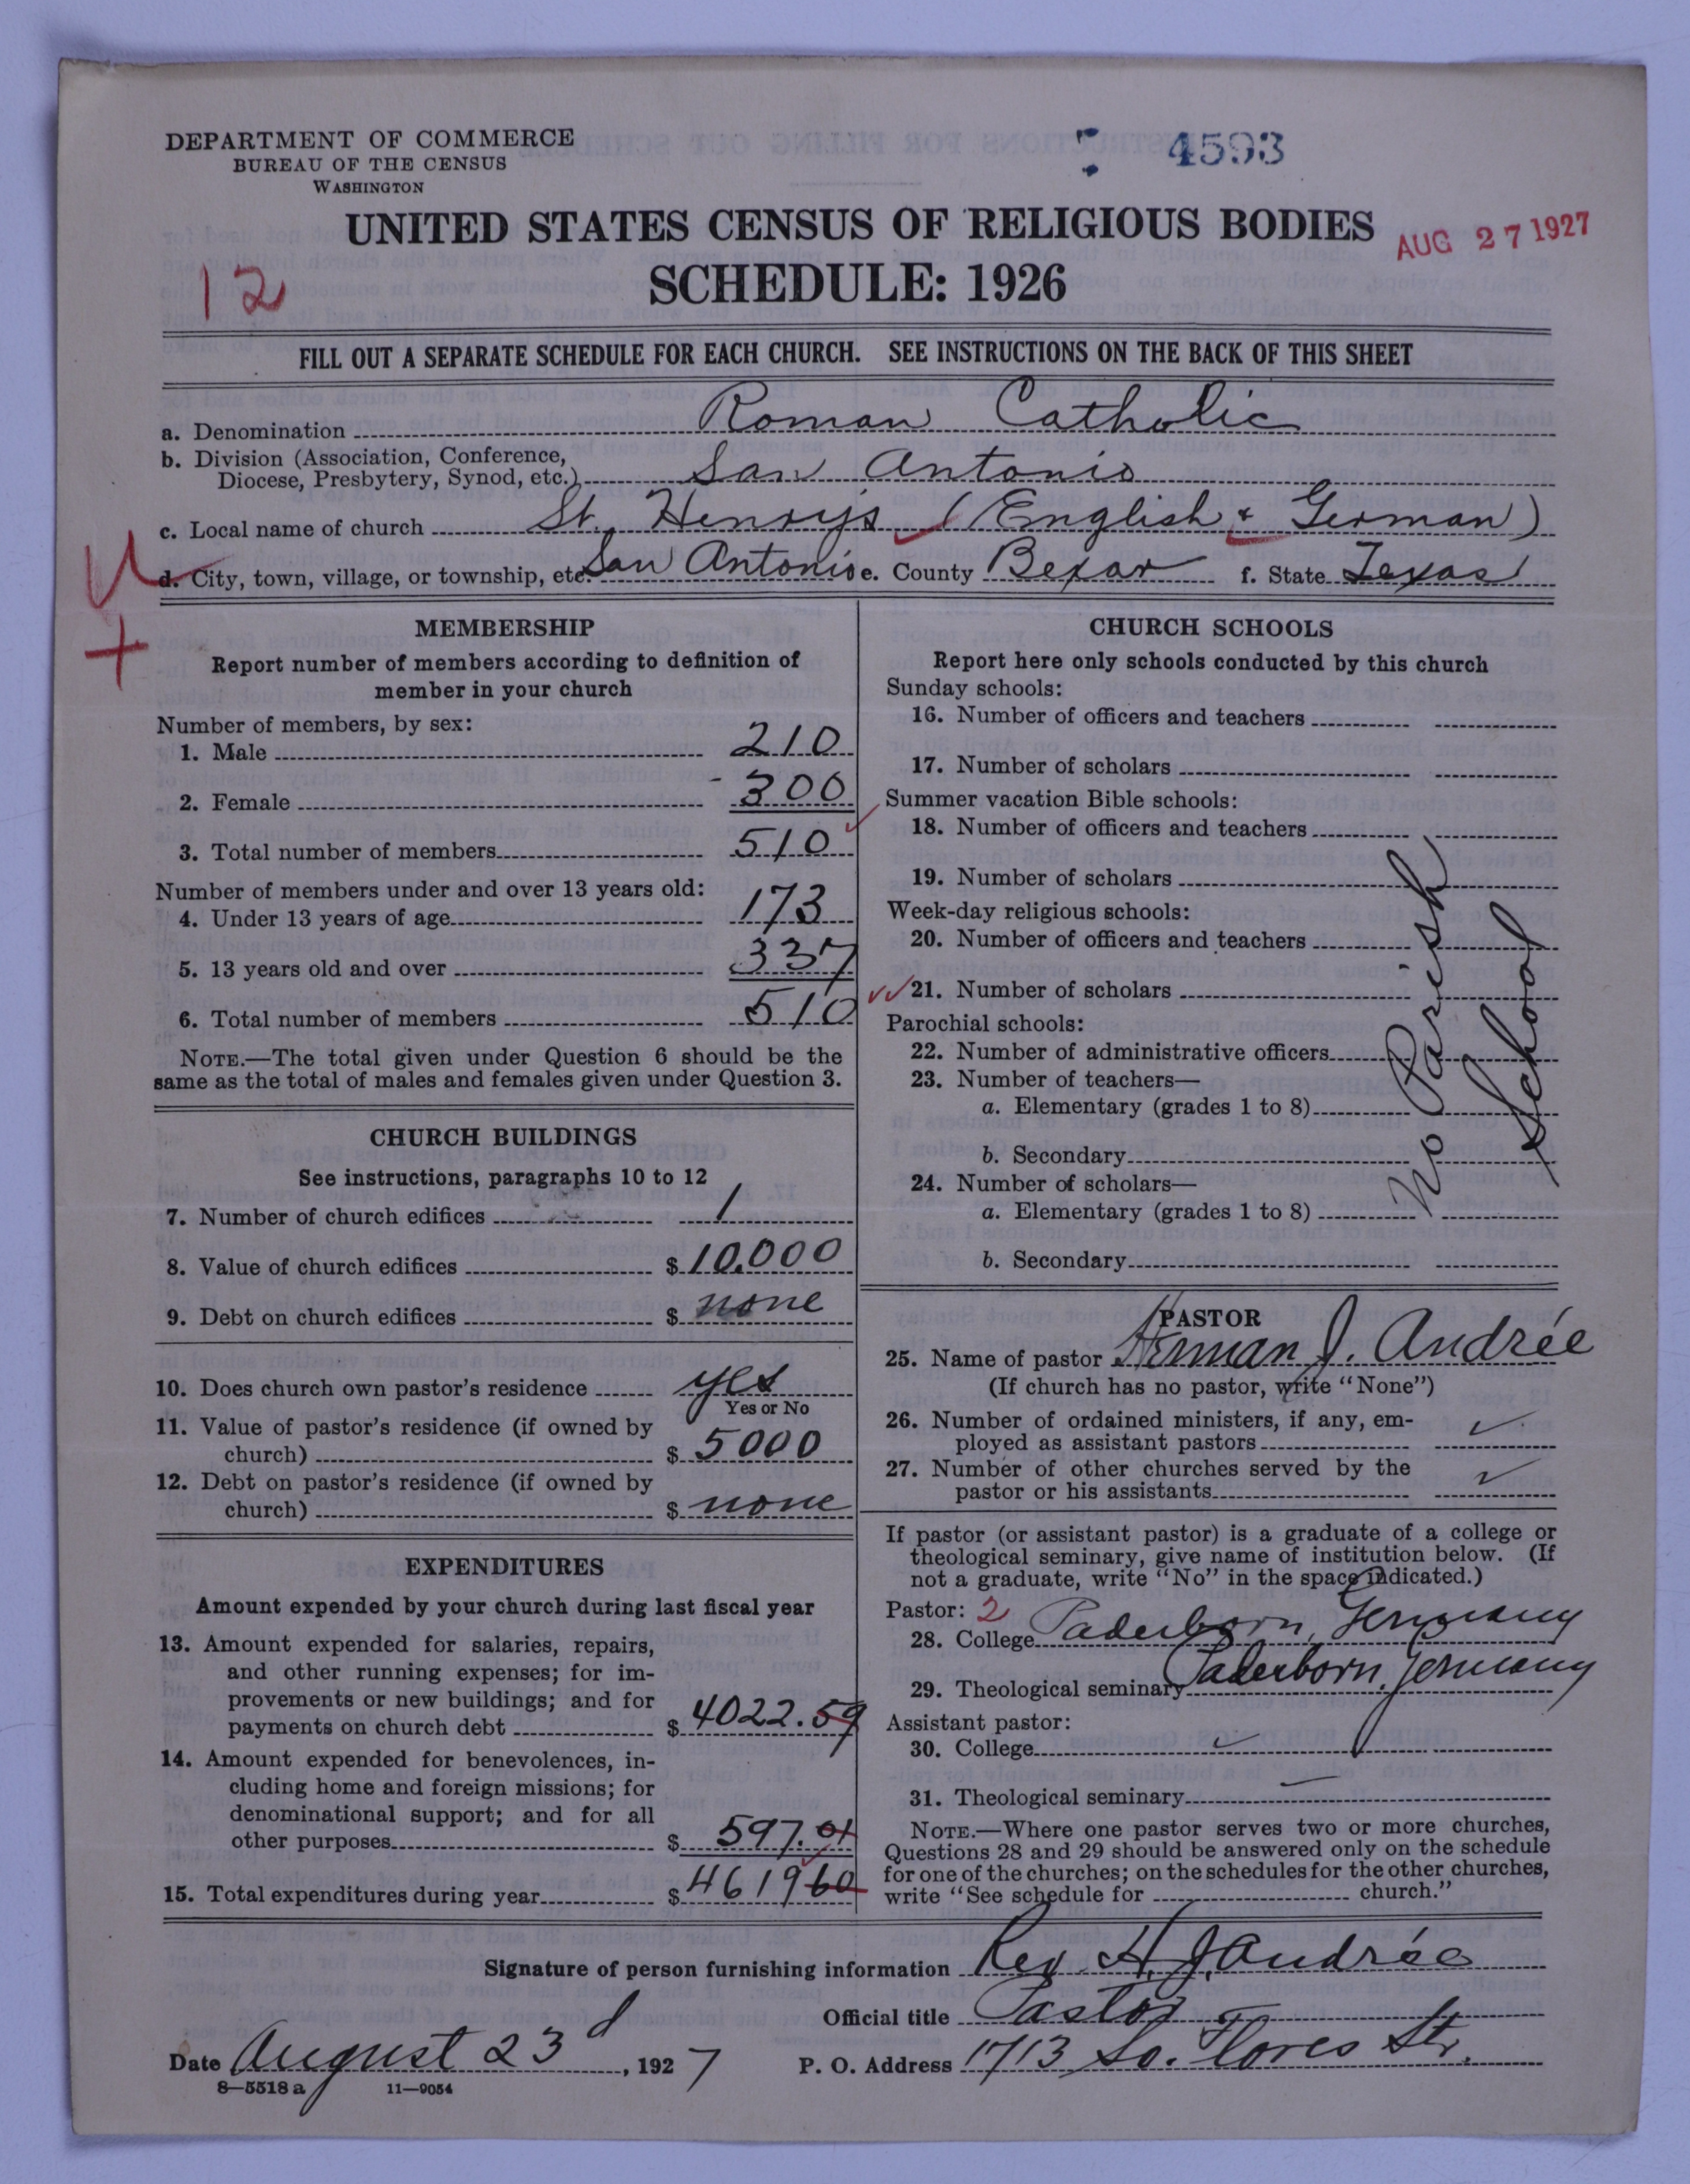 DEPARTMENT OF COMMERCE
BUREAU OF THE CENSUS
WASHINGTON
4593
UNITED STATES CENSUS OF RELIGIOUS BODIES
AUG 27 1927
12
SCHEDULE: 1926
FILL OUT A SEPARATE SCHEDULE FOR EACH CHURCH. SEE INSTRUCTIONS ON THE BACK OF THIS SHEET
a. Denomination Roman Catholic
b. Division (Association, Conference,
Diocese, Presbytery, Synod, etc.) San Antonio
c. Local name of church St. Henrys (English & German)
d. City, town, village, or township, etc. San Antonio e. County Bexar f. State Texas
MEMBERSHIP
Report number of members according to definition of
member in your church
Number of members, by sex:
1. Male 210
2. Female 300
3. Total number of members 510
Number of members under and over 13 years old:
4. Under 13 years of age 173
5. 13 years old and over 337
6. Total number of members 510
NOTE.—The total given under Question 6 should be the
same as the total of males and females given under Question 3.
CHURCH BUILDINGS
See instructions, paragraphs 10 to 12
7. Number of church edifices 1
8. Value of church edifices $ 10.000
9. Debt on church edifices $ none
10. Does church own pastor's residence yes
Yes or No
11. Value of pastor's residence (if owned by
church) $ 5000
12. Debt on pastor's residence (if owned by
church) $ none
EXPENDITURES
Amount expended by your church during last fiscal year
13. Amount expended for salaries, repairs,
and other running expenses; for im-
provements or new buildings; and for
payments on church debt $ 4022.59
14. Amount expended for benevolences, in-
cluding home and foreign missions; for
denominational support; and for all
other purposes $ 597.01
15. Total expenditures during year $ 461960
CHURCH SCHOOLS
Report here only schools conducted by this church
Sunday schools:
16. Number of officers and teachers
17. Number of scholars
Summer vacation Bible schools:
18. Number of officers and teachers
19. Number of scholars
Week-day religious schools:
20. Number of officers and teachers
21. Number of scholars
Parochial schools:
22. Number of administrative officers
23. Number of teachers—
a. Elementary (grades 1 to 8)
b. Secondary
24. Number of scholars—
a. Elementary (grades 1 to 8)
b. Secondary
No Parish
School
PASTOR
25. Name of pastor Herman J. Andrée
(If church has no pastor, write "None")
26. Number of ordained ministers, if any, em-
ployed as assistant pastors ✓
27. Number of other churches served by the
pastor or his assistants ✓
If pastor (or assistant pastor) is a graduate of a college or
theological seminary, give name of institution below. (If
not a graduate, write "No" in the space indicated.)
Pastor: 2
28. College Paderborn, Germany
29. Theological seminary Paderborn, Germany
Assistant pastor:
30. College ✓
31. Theological seminary —
NOTE.—Where one pastor serves two or more churches,
Questions 28 and 29 should be answered only on the schedule
for one of the churches; on the schedules for the other churches,
write "See schedule for church."
Signature of person furnishing information Rev. H. J. Andrée
Official title Pastor
Date August 23d, 1927 P. O. Address 1713 So. Flores Str.
8—5518 a 11—9054